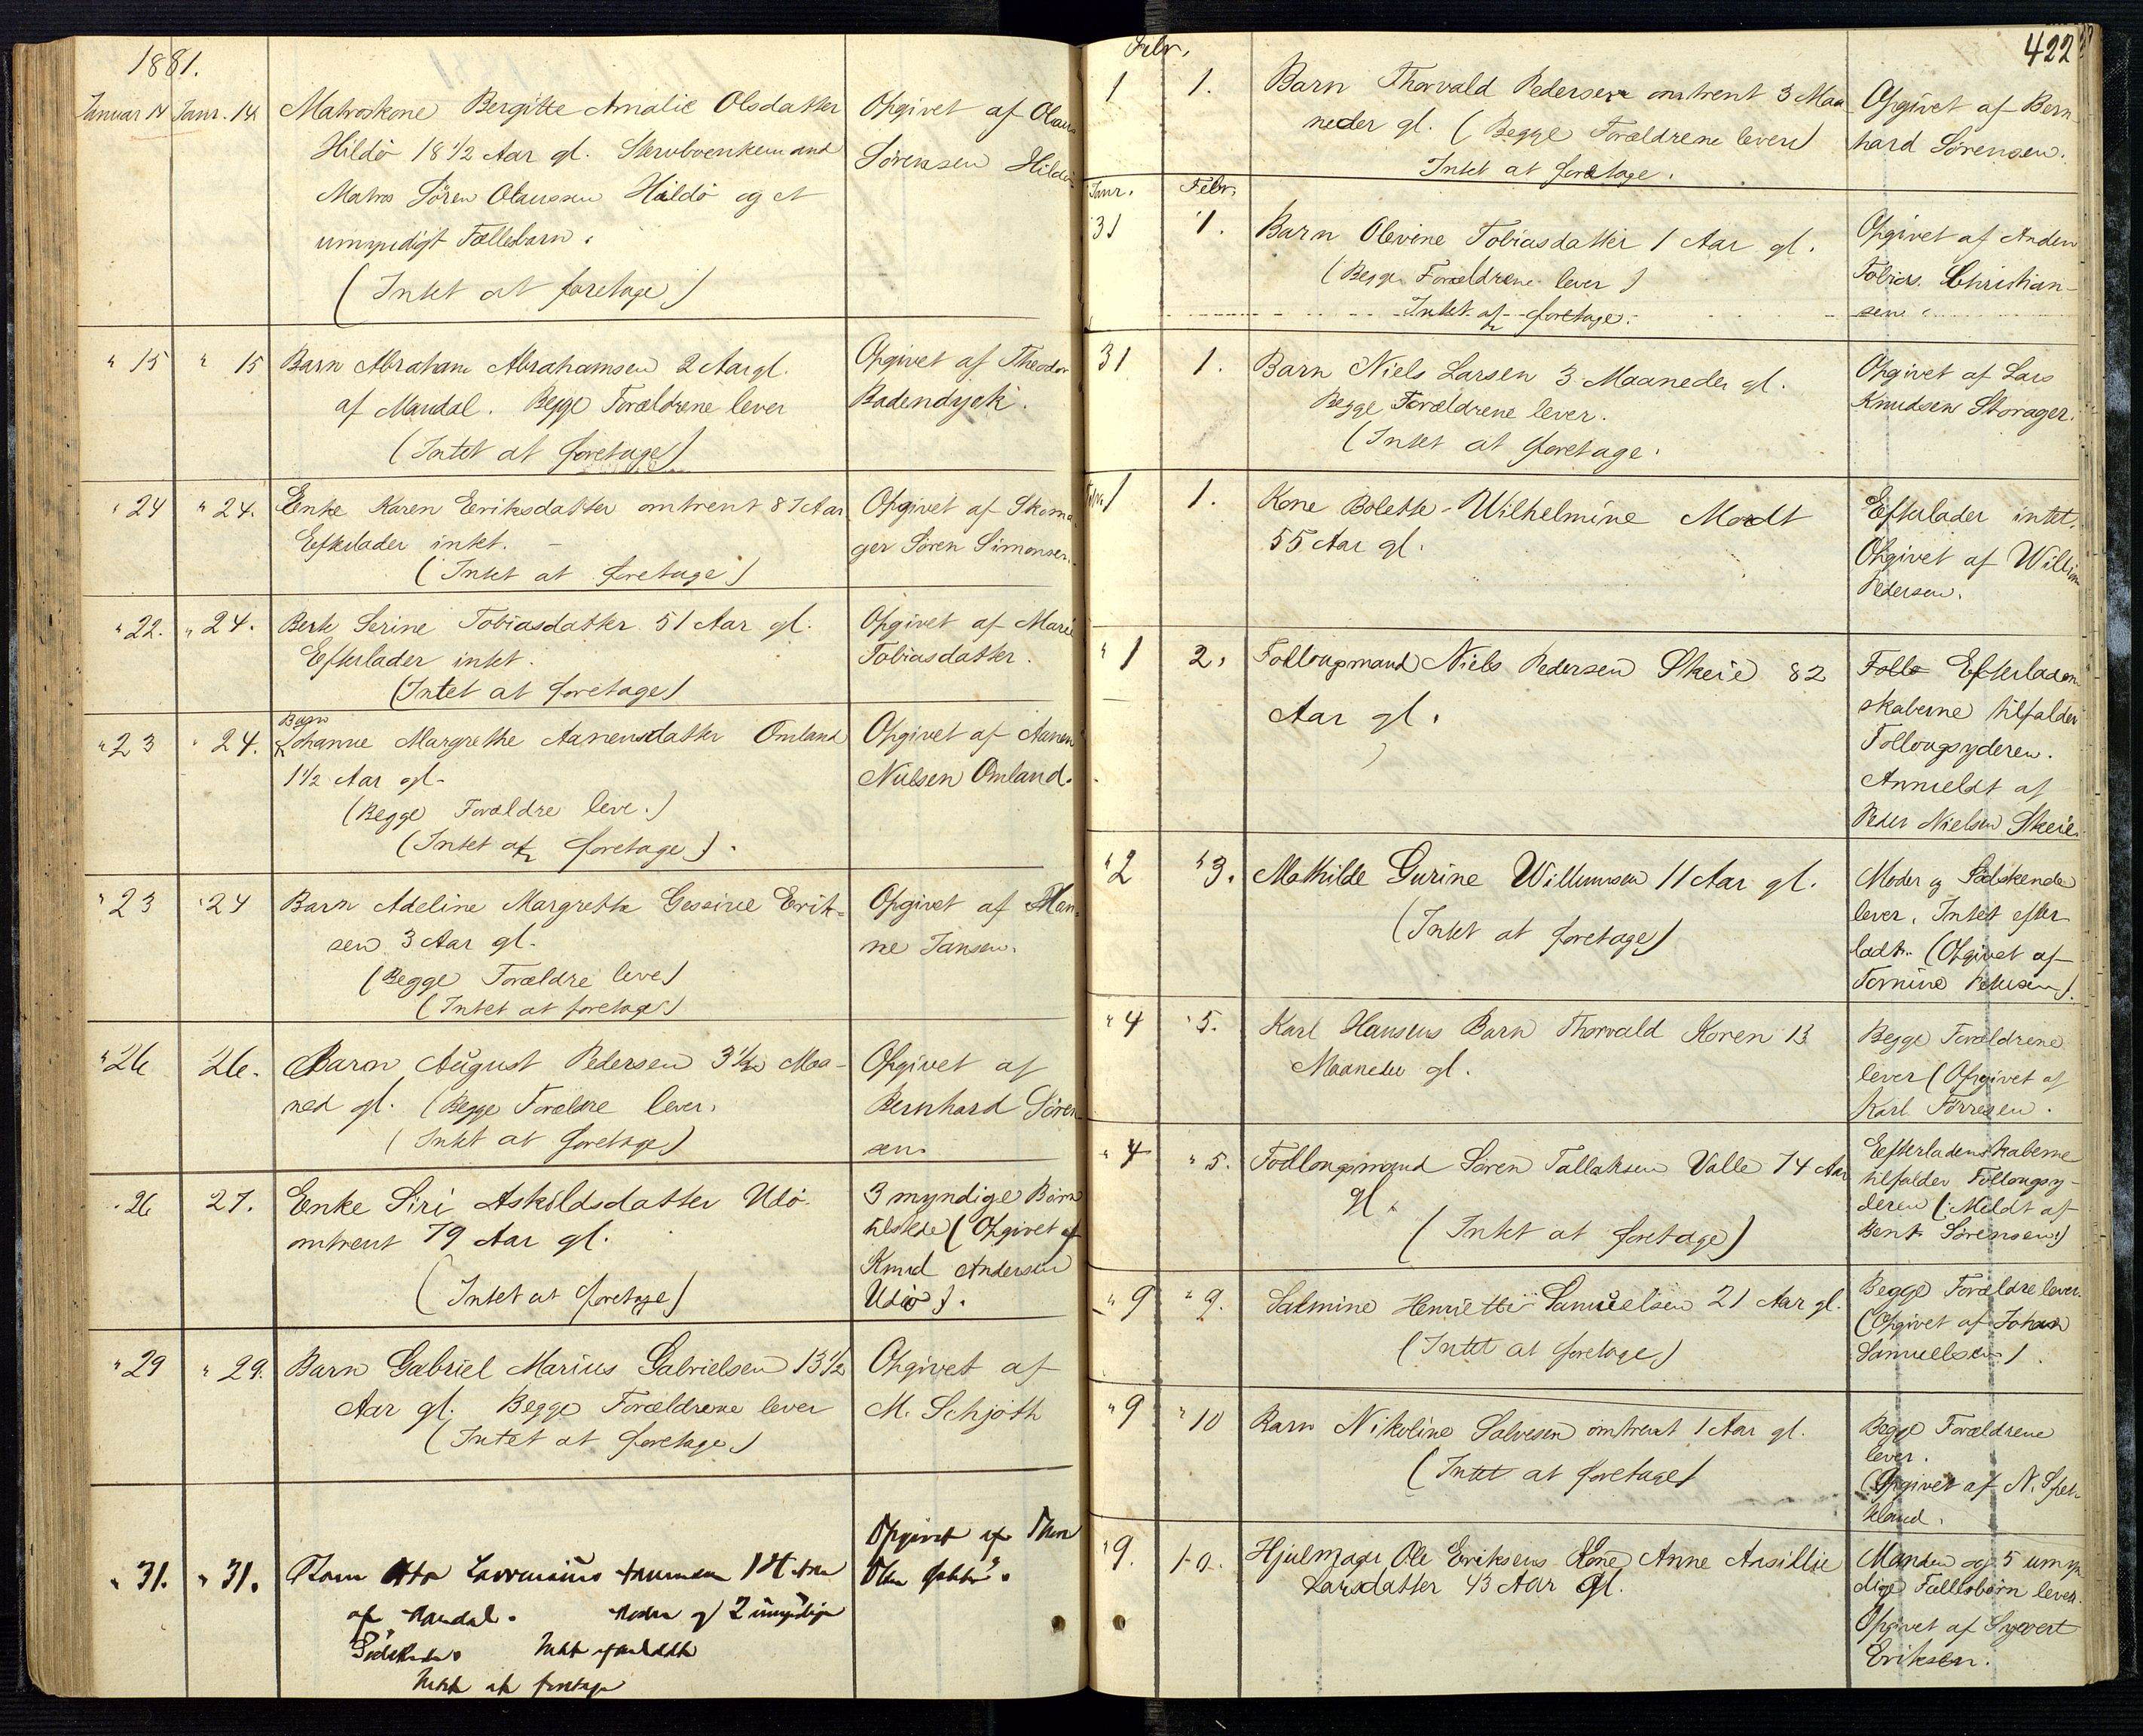 1881.
Januar 14 Janr. 14 Matroskone Bergitte Amalie Olsdatter
Hildö 18 1/2 Aar gl.
Matros Sören Olaussen Hildö og et
umyndigt Fællesbarn.
(Intet at foretage)
Opgivet af Olaus
Sörensen Hildö
" 15 " 15 Barn Abraham Abrahamsen 2 Aar gl.
af Mandal. Begge Forældrene lever
(Intet at foretage)
Opgivet af Theodor
Badendyck.
" 24 " 24. Enke Karen Eriksdatter omtrent 87 Aar
Efterlader intet. –
(Intet at foretage)
Opgivet af Skoma
ger Sören Simonsen.
" 22. " 24. Serine Tobiasdatter 51 Aar gl.
Efterlader intet.
(Intet at foretage)
Opgivet af Marie
Tobiasdatter.
Barn
" 23 " 24. Johanne Margrethe Aanensdatter Omland
1 1/2 Aar gl.
(Begge Forældre leve.)
(Intet at foretage).
Opgivet af Aanen
Nielsen Omland.
" 23 " 24 Barn Adeline Margrethe Gessine Erik-
sen 3 Aar gl.
(Begge Forældre leve)
(Intet at foretage)
Opgivet af Han-
ne Jansen.
" 26 26. Barn August Pedersen 3 1/2 Maa-
ned gl. (Begge Forældre lever.
(Intet at foretage)
Opgivet af
Bernhard Sören-
sen.
" 26 27. Enke Siri Askildsdatter Udö
omtrent 79 Aar gl.
(Intet at foretage)
3 myndige Börn
tilstede (Opgivet af
Knud Andersen
Udö).
" 29 " 29. Barn Gabriel Marius Gabrielsen 13 1/2
Aar gl. Begge Forældrene lever
(Intet at foretage)
Opgivet af
M. Schjöth
" 31. " 31. Barn Otto
af Mandal. Moder og 2 umyndige
Södskende. Intet efterladt
Intet at foretage
Opgivet af
422
Febr.
1 1. Barn Thorvald Pedersen omtrent 3 Maa
neder gl. (Begge Forældrene lever)
Intet at foretage.
Opgivet af Bern-
hard Sörensen.
Janr. Febr.
31 1. Barn Olevine Tobiasdatter 1 Aar gl.
(Begge Forældrene lever)
Intet at foretage.
Opgivet af Anden
Tobias Christian-
sen.
31 1. Barn Niels Larsen 3 Maaneder gl.
Begge Forældrene lever.
(Intet at foretage.
Opgivet af Lars
Knudsen Storager.
Febr. 1 1. Kone Bolette Wilhelmine Modt
55 Aar gl.
Efterlader intet.
Opgivet af Willem
Pedersen.
" 1 2. Follougsmand Niels Pedersen Skeie 82
Aar gl.
Follo Efterladen
skaberne tilfalder
Follougsyderen.
Anmeldt af
Peder Nielsen Skeie
" 2 " 3. Mathilde Gurine Willumsen 11 Aar gl.
(Intet at foretage)
Moder og Södskende
lever. Intet efter
ladt. (Opgivet af
Tomine Petersen).
" 4 " 5. Karl Hansens Barn Thorvald Koren 13
Maaneder gl.
Begge Forældrene
lever (Opgivet af
Karl Törresen.
" 4 " 5. Follougsmand Sören Tallaksen Valle 74 Aar
gl.
(Intet at foretage)
Efterladenskaberne
tilfalder Follougsy-
deren (: Meldt af
Bent Sörensen)
" 9 " 9. Salmine Henriette Samuelsen 21 Aar gl.
(Intet at foretage)
Begge Forældre lever.
(Opgivet af Johan
Samuelsen).
" 9 " 10 Barn Nikoline Salvesen omtrent 1 Aar gl.
(Intet at foretage)
Begge Forældrene
lever.
(Opgivet af N.
" 9. 10. Hjulmager Ole Eriksens Kone Anne Arsillie
Larsdatter 43 Aar Gl.
Manden og 5 umyn
dige Fællesbörn lever.
Opgivet af Syvert
Eriksen.